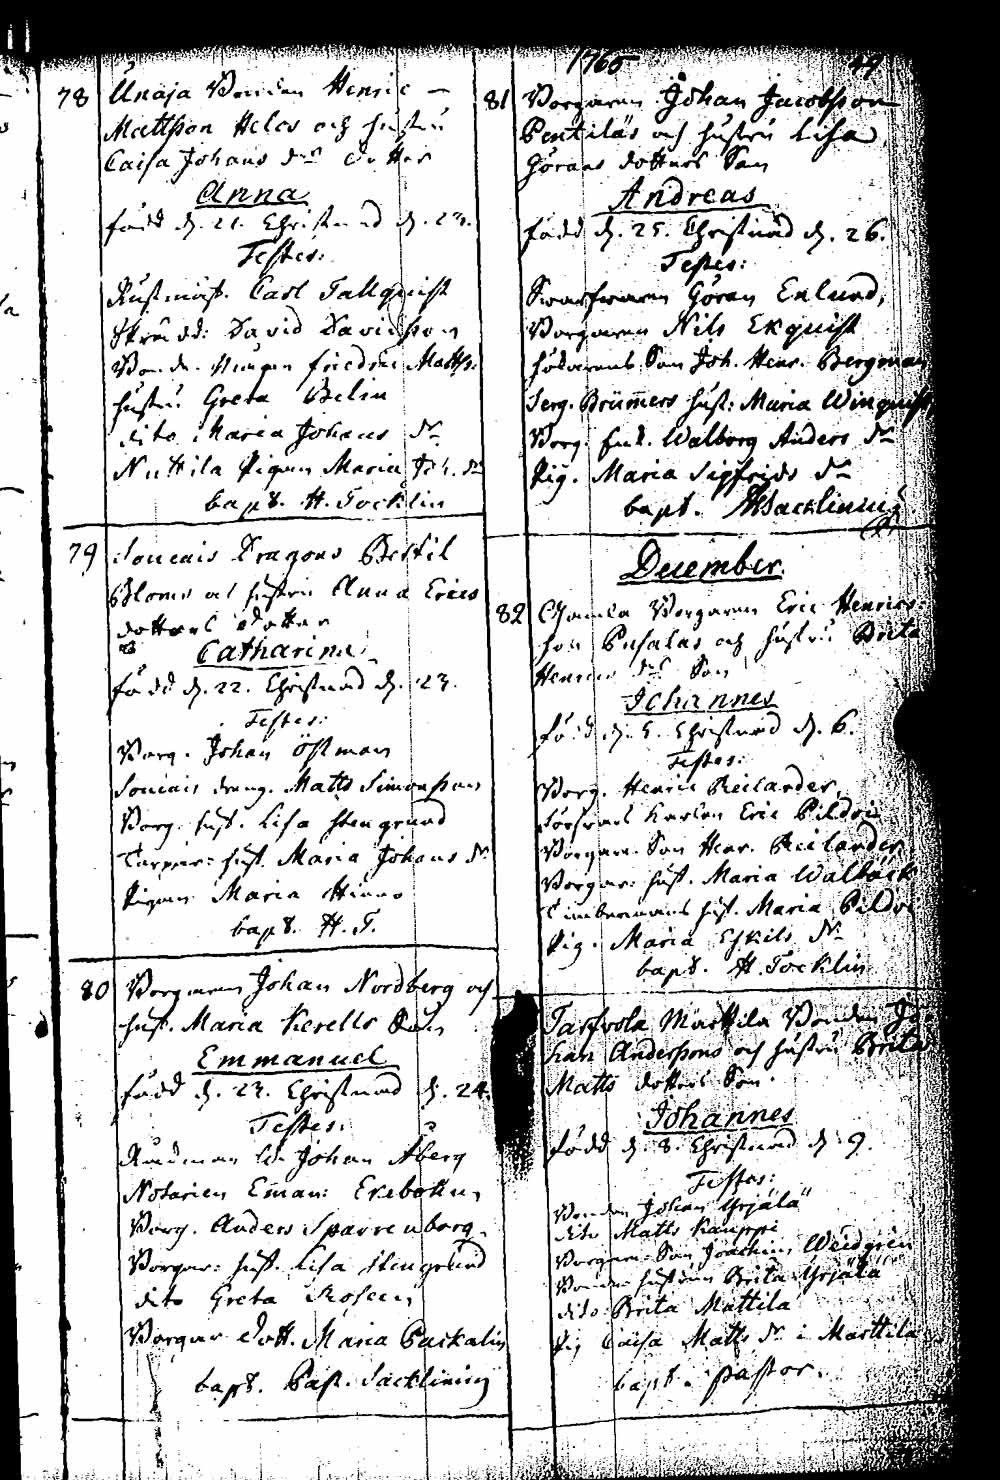 1765 49
78 Unaja Bonden Henric
Mattsson Heles och hustru
Caisa Johans drs dotter
Anna
född d. 21. Christnad d. 23.
Testes:
Rustmäst. Carl Tallquist
Skrädd: David Davidsson
Bonde Matts:
hustru Greta Belin
dito Maria Johans dr
Nuttila Pigan Maria Joh. dr
bapt. H. Tocklin
79 Soucais Dragons Bertil
Bloms och hustru Anna Erics
dotters dotter
Catharina
född d. 22. Christnad d. 23.
Testes:
Borg. Johan Östman
Soucais dreng. Matts Simonsson
Borg. hust. Lisa Stengrund
hust. Maria Johans dr
Pigan Maria
bapt. H. T.
80 Borgaren Johan Nordberg och
hust. Maria Kerells Son
Emmanuel
född d. 23. Christnad d. 24.
Testes:
Rådman Johan Åberg
Notarien Eman: Ekebohm
Borg. Anders Sparrenborg
Borgar: hust. Lisa Stengrund
dito Greta Roseen
Borgar dott. Maria Packalin
bapt. Past. Sacklinius
81 Borgaren Johan Jacobsson
Pentiläs och hustru Lisa
Görans dotters Son
Andreas
född d. 25. Christnad d. 26.
Testes:
Swarfwaren Göran Enlund,
Borgaren Nils Ekquist
Son Joh. Henr. Bergman
Serg. Brümmers hust: Maria Winquist
Borg. Enk. Walborg Anders dr
Pig. Maria Sigfrids dr
bapt. Sacklinius
December.
82 Gamla Borgaren Eric Henrics-
son och hustru Brita
Henrics drs Son
Johannes
född d. 5. Christnad d. 6.
Testes:
Borg. Henric Reilander,
Karlen Eric Pildri
Borgare Son Henr. Reilander
Borgar: hust. Maria Walbäck
Timbermans hust. Maria Pildri
Pig. Maria Eskils dr
bapt. H. Tocklin
Marttila Bonden Jo-
han Anderssons och hustru Brita
Matts dotters Son.
Johannes
född d. 8. Christnad d. 9.
Testes:
Bonden Johan Yrjälä
dito Matts Kauppi
Borgare Son Joachim Weidgren
Bonde hustrun Brita Yrjälä
dito Brita Mattila
Pig Caisa Matts dr i Marttila
bapt. Pastor.